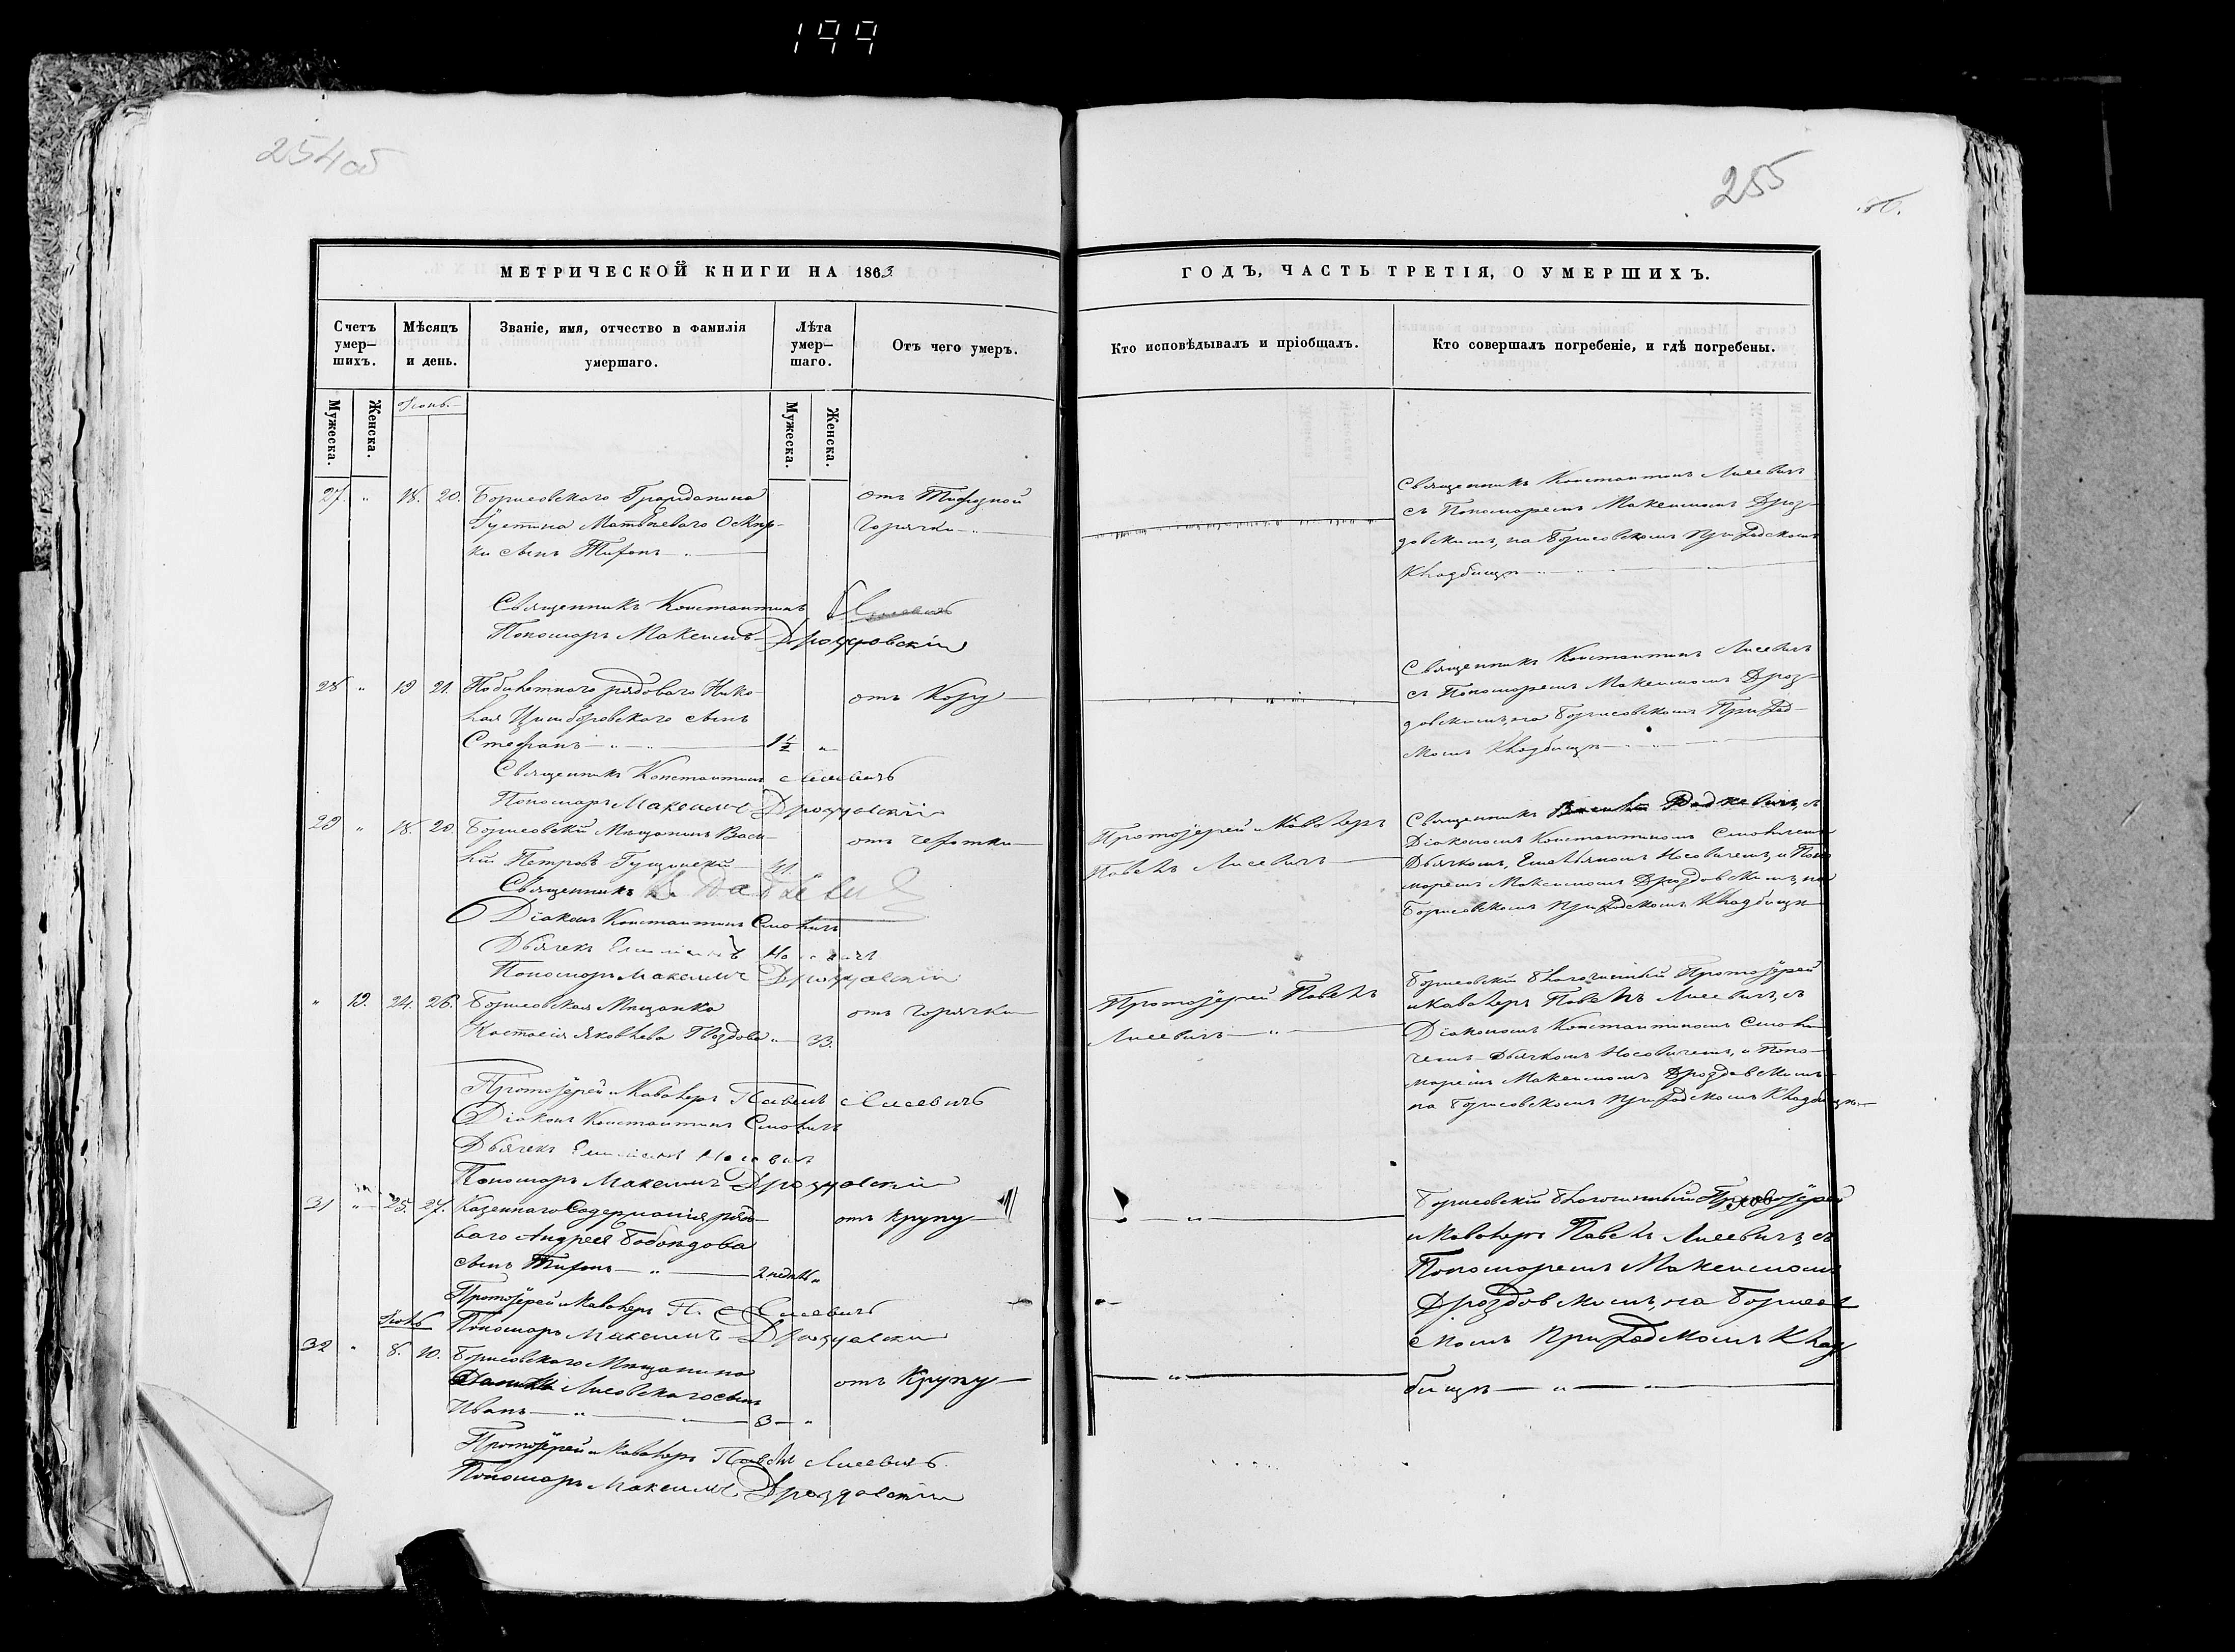 199
254 об
255
МЕТРИЧЕСКОЙ КНИГИ НА 1863
ГОДЪ, ЧАСТЬ ТРЕТІЯ, О УМЕРШИХЪ.
Счетъ умер—шихъ.
Мѣсяцъ и день.
Званіе, имя, отчество и фамилія умершаго.
Лѣта умер—шаго.
Отъ чего умеръ.
Кто исповѣдывалъ и пріобщалъ.
Кто совершалъ погребеніе, и гдѣ погребены.
Мужеска.
Женска.
Мужеска.
Женска.
27. " 18. 20. Борисовскаго Гражданина
Матвѣева
ки сынъ Тихонъ
отъ Тифозной
горячки
Священникъ Константинъ Лисевичъ
съ Пономаремъ Максимомъ Дроз-
довскимъ, на Борисовскомъ Приходскомъ
Кладбищѣ
Священникъ Константинъ Лисевичъ
Пономарь Максимъ Дроздовскій
28 " 19 21. рядоваго Нико-
лая сынъ
Стефанъ 1½ "
отъ Кору
Священникъ Константинъ Лисевичъ
съ Пономаремъ Максимомъ Дроз-
довскимъ, на Борисовскомъ Приход-
скомъ Кладбищѣ
Священникъ Константинъ Лисевичъ
Пономарь Максимъ Дроздовскій
29 " 18. 20. Борисовскій Мѣщанинъ Васи-
лій Петровъ
отъ чахотки
Протоіерей и Кавалеръ
Павелъ Лисевичъ
Священникъ Радкевичъ, съ
Діакономъ Константиномъ Смоличемъ
Дьячкомъ, Емельяномъ Носовичемъ, и Поно
маремъ Максимомъ Дроздовскимъ, на
Борисовскомъ Приходскомъ Кладбищѣ
Священникъ
Діаконъ Константинъ Смоличъ
Дьячекъ Носовичъ
Пономарь Максимъ Дроздовскій
" 19. 24. 26. Борисовская Мѣщанка
Настасія Яковлева Гвоздова " 33.
отъ горячки
Протоіерей Павелъ
Лисевичъ
Борисовскій Благочинный Протоіерей
и Кавалеръ Павелъ Лисевичъ, съ
Діакономъ Константиномъ Смоли
чемъ Дьячкомъ Носовичемъ, и Поно-
маремъ Максимомъ Дроздовскимъ
на Борисовскомъ Приходскомъ Кладбищѣ
Протоіерей и Кавалеръ Павелъ Лисевичъ
Діаконъ Константинъ Смоличъ
Дьячекъ Носовичъ
Пономарь Максимъ Дроздовскій
31 " 25. 27. Казеннаго Содержанія рядо-
ваго Андрея
сынъ Тихонъ 2 недѣль "
отъ крупу
Борисовскій Благочинный Протоіерей
и Кавалеръ Павелъ Лисевичъ, съ
Пономаремъ Максимомъ
Дроздовскимъ, на Борисов
скомъ Приходскомъ Клад
бищѣ
Протоіерей и Кавалеръ П. Лисевичъ
Пономарь Максимъ Дроздовскій
32 " 8. 10. Борисовскаго Мѣщанина
Лисовскаго сынъ
Иванъ 3 "
отъ Крупу
Протоіерей и Кавалеръ Павелъ Лисевичъ
Пономарь Максимъ Дроздовскій